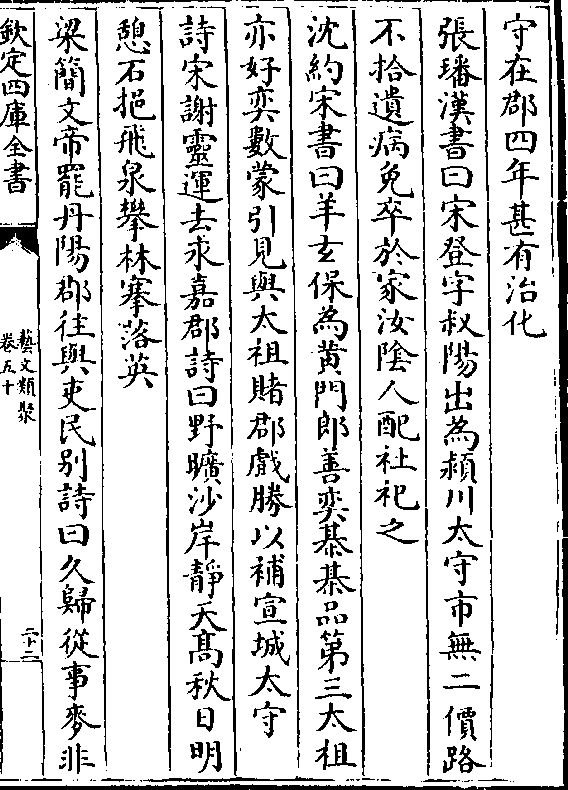 守在郡四年甚有治化
張璠漢書曰宋登字叔陽出為潁川太守市無二價路
不拾遺病免卒於家汝隂人配社祀之
沈約宋書曰羊玄保為黄門郎善奕棊棊品第三太祖
亦好奕數蒙引見與太祖賭郡戲勝以補宣城太守
詩宋謝靈運去永嘉郡詩曰野曠沙岸靜天高秋日明
憩石挹飛泉攀林搴落英
梁簡文帝罷丹陽郡往與吏民别詩曰久歸從事麥非
欽定四庫全書
藝文類聚
卷五十
二十二